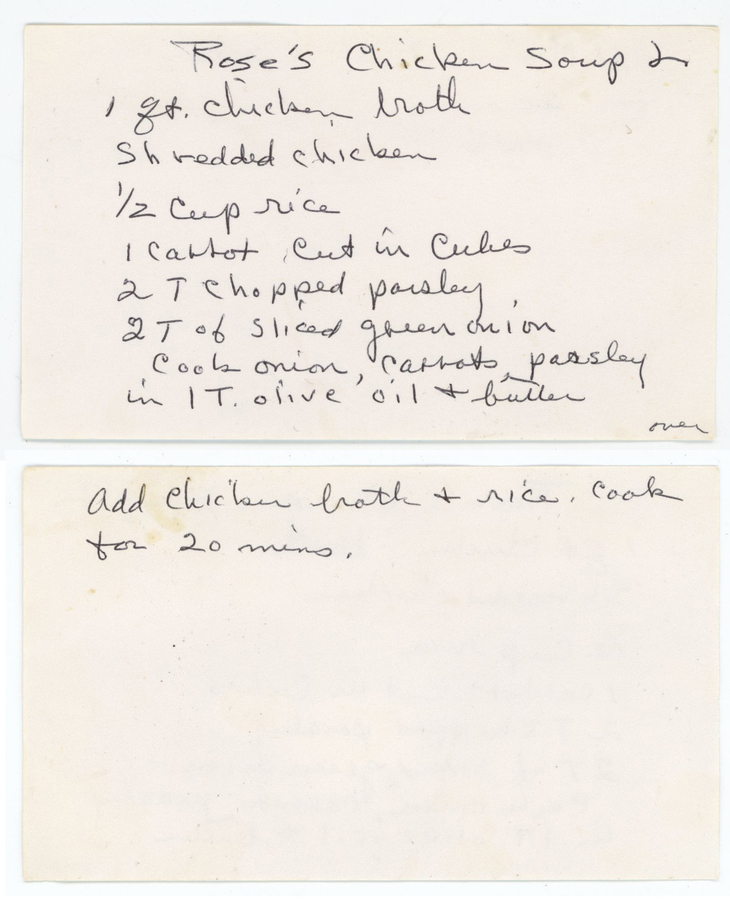 Rose's Chicken Soup 2
1 qt. chicken broth
Shredded chicken
1/2 Cup rice
1 Carrot, Cut in Cubes
2 T Chopped parsley
2 T of Sliced green onion
Cook onion, carrots, parsley
in 1 T. olive oil + butter
over
Add Chicken broth + rice. Cook
for 20 mins.